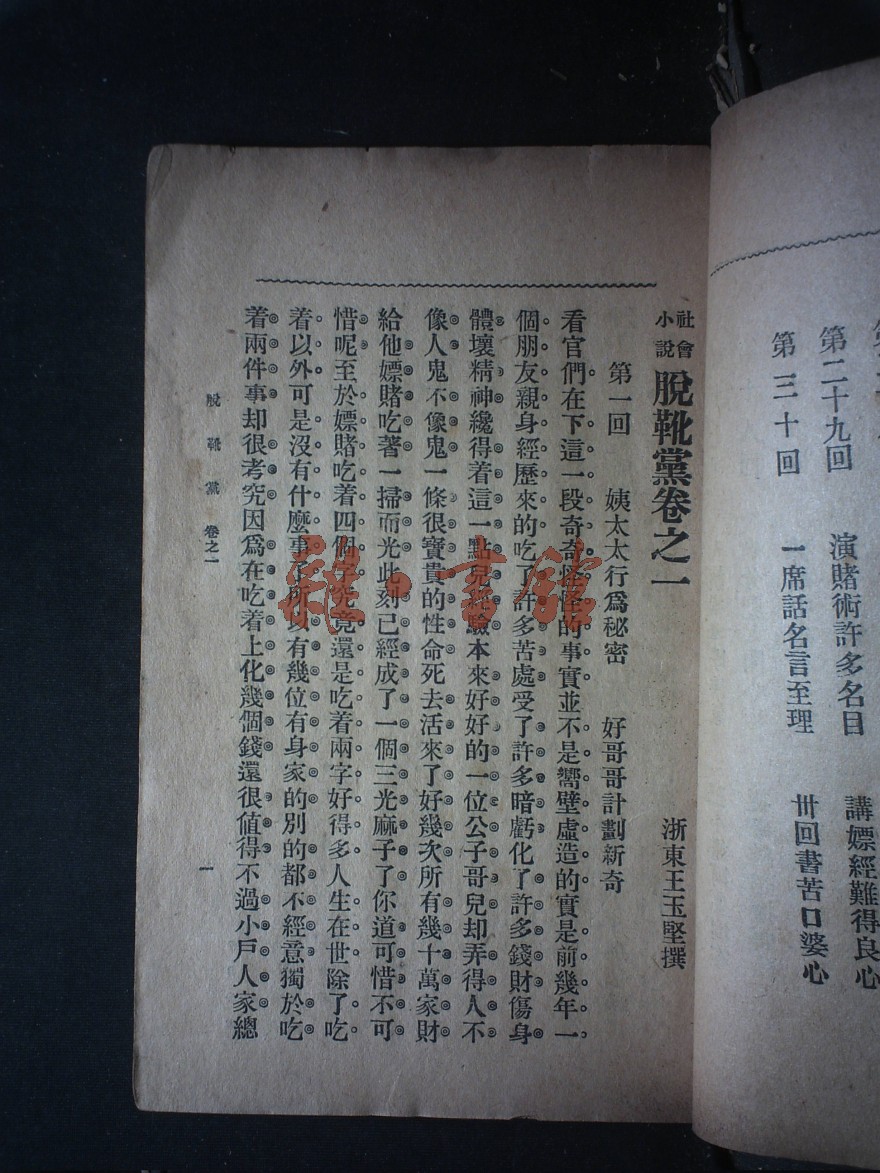 第二十九回 演賭術許多名目 講嫖經難得良心
第三十回 一席話名言至理 卅回書苦口婆心
社會小說 脫靴黨卷之一 浙東王玉堅撰
第一回 姨太太行爲秘密 好哥哥計劃新奇
看官們在下這一段奇奇怪怪的事實並不是嚮壁虛造的實是前幾年一
個朋友親身經歷來的吃了許多苦處受了許多暗虧化了許多錢財傷身
體壞精神纔得着這一點兒經驗本來好好的一位公子哥兒却弄得人不
像人鬼不像鬼一條很寶貴的性命死去活來了好幾次所有幾十萬家財
給他嫖賭吃著一掃而光此刻已經成了一個三光麻子了你道可惜不可
惜呢至於嫖賭吃着四個字究竟還是吃着兩字好得多人生在世除了吃
着以外可是沒有什麼事了所以有幾位有身家的別的都不經意獨於吃
着兩件事却很考究因爲在吃着上化幾個錢還很值得不過小戶人家總
脫靴黨 卷之一
一